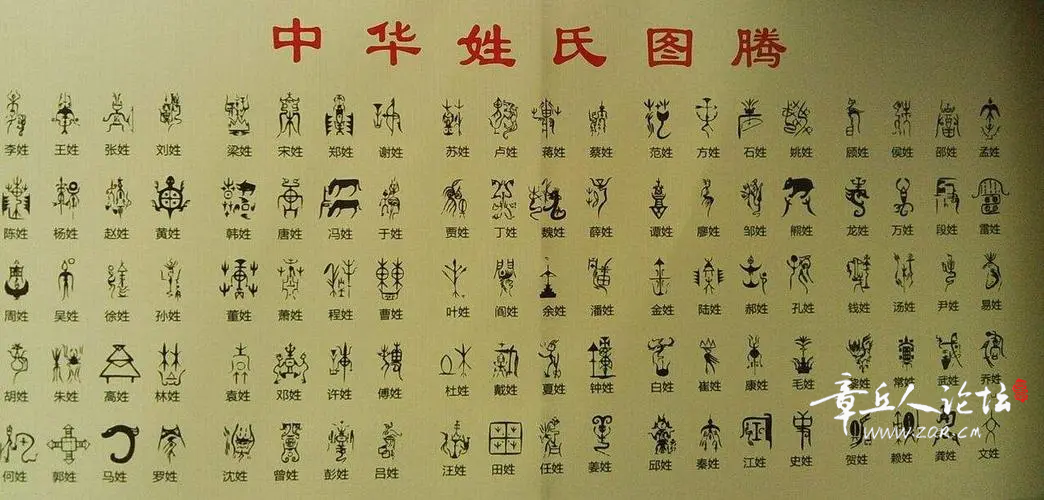 中华姓氏图腾
李姓 王姓 张姓 刘姓 梁姓 宋姓 郑姓 谢姓 苏姓 卢姓 蒋姓 蔡姓 范姓 方姓 石姓 姚姓 顾姓 侯姓 邵姓 孟姓
陈姓 杨姓 赵姓 黄姓 韩姓 唐姓 冯姓 于姓 贾姓 丁姓 魏姓 薛姓 谭姓 廖姓 邹姓 熊姓 龙姓 万姓 段姓 雷姓
周姓 吴姓 徐姓 孙姓 董姓 萧姓 程姓 曹姓 叶姓 阎姓 余姓 潘姓 金姓 陆姓 郝姓 孔姓 钱姓 汤姓 尹姓 易姓
胡姓 朱姓 高姓 林姓 袁姓 邓姓 许姓 傅姓 杜姓 戴姓 夏姓 钟姓 白姓 崔姓 康姓 毛姓 黎姓 常姓 武姓 乔姓
何姓 郭姓 马姓 罗姓 沈姓 曾姓 彭姓 吕姓 汪姓 田姓 任姓 姜姓 邱姓 秦姓 江姓 史姓 贺姓 赖姓 龚姓 文姓
章丘人论坛
www.ZQR.cm